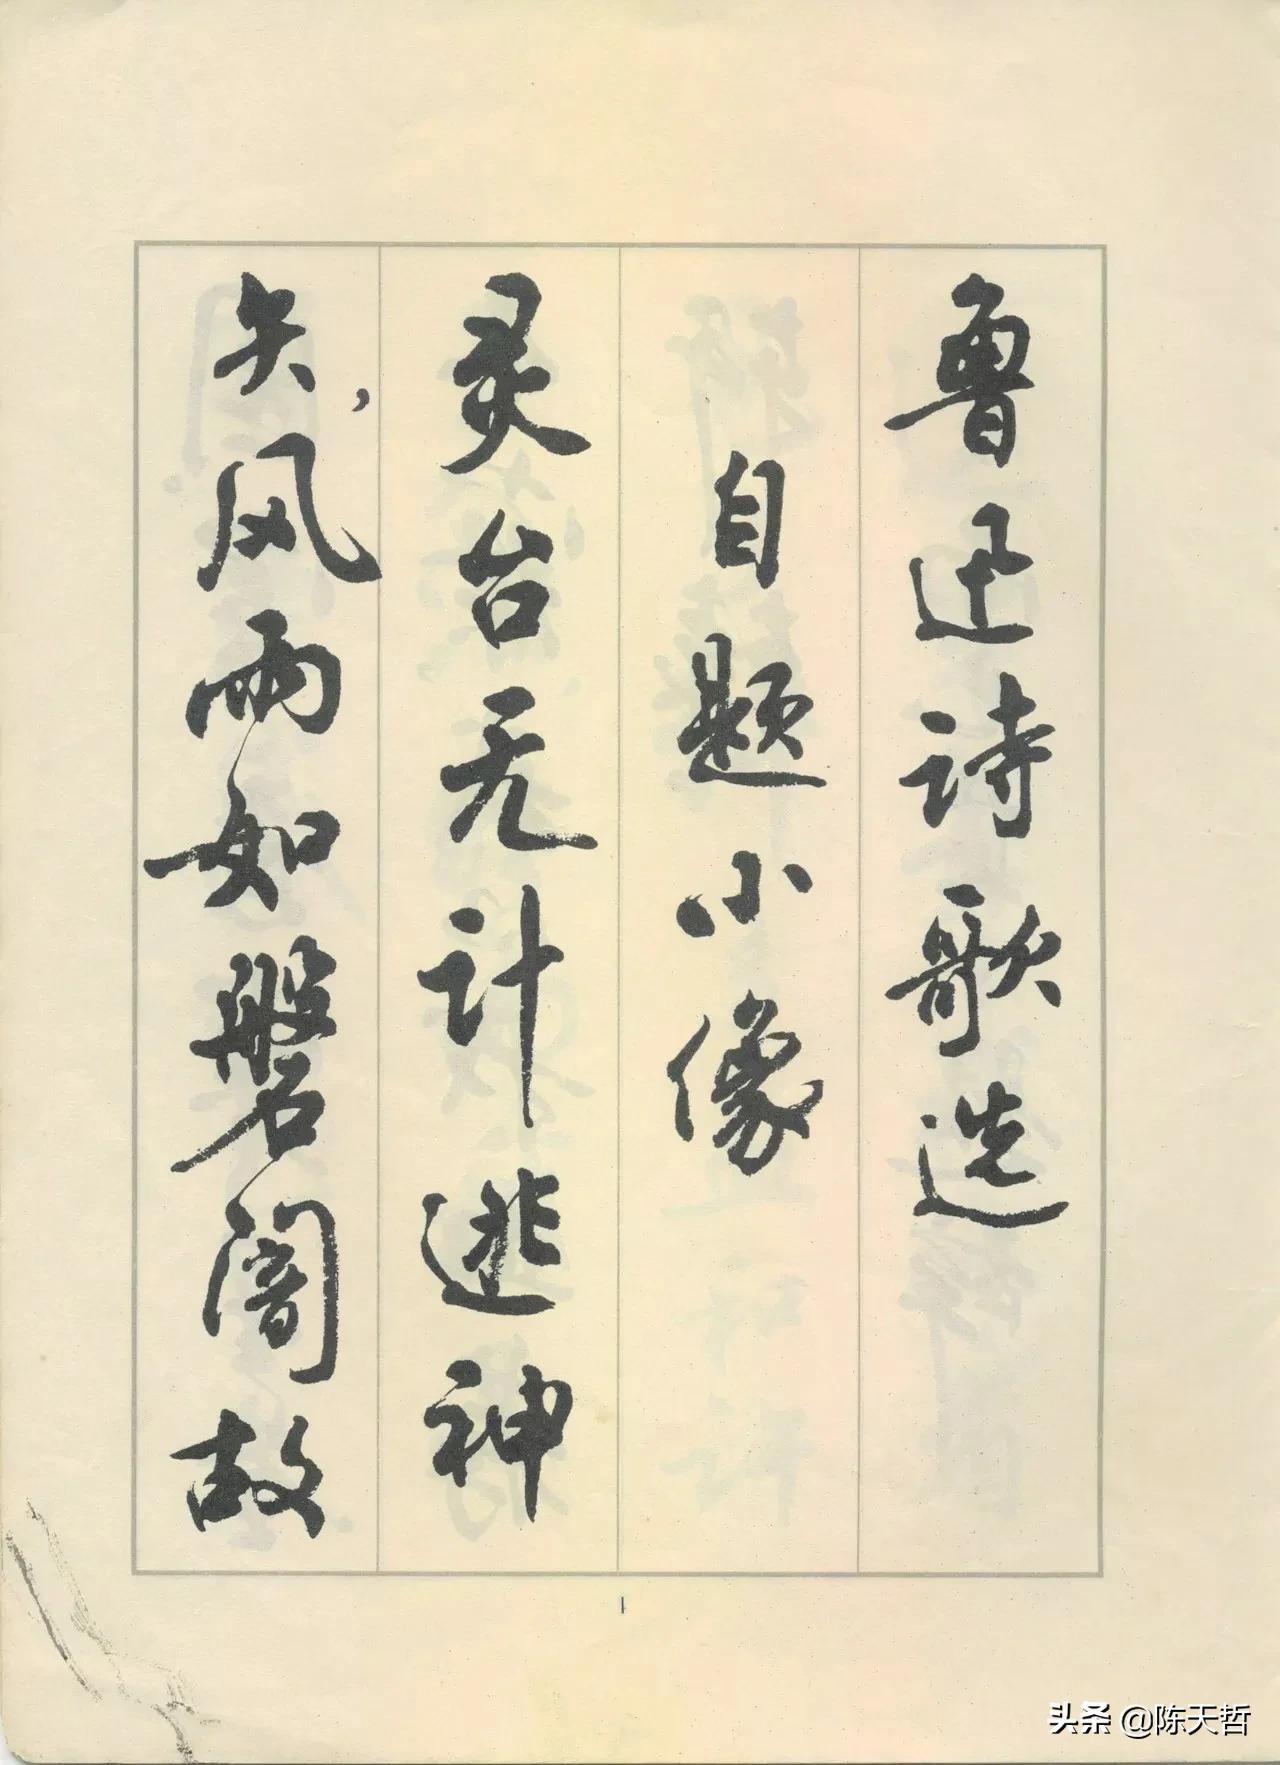 鲁迅诗歌选
自题小像
灵台无计逃神
矢，风雨如磐闇故
1
头条 @陈天哲